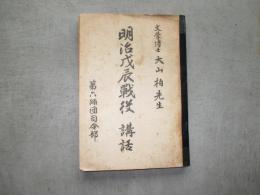 文学博士 大山柏先生
明治戊辰戰役 講話
第六師団司令部